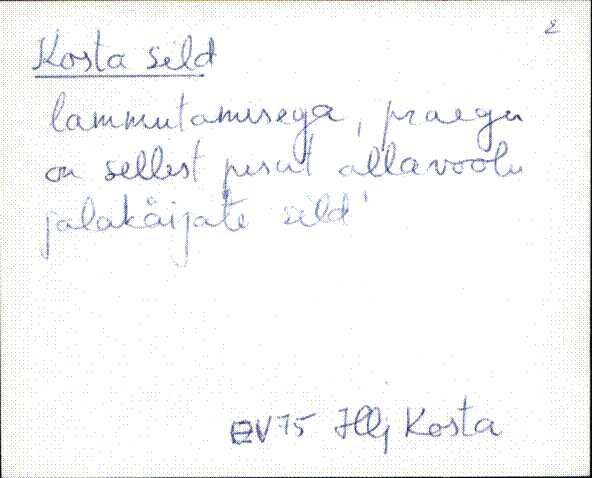 2
Kosta sild
lammutamisega, praegu
on sellest pisut allavoolu
jalakäijate sild'
EV75 Hlj Kosta